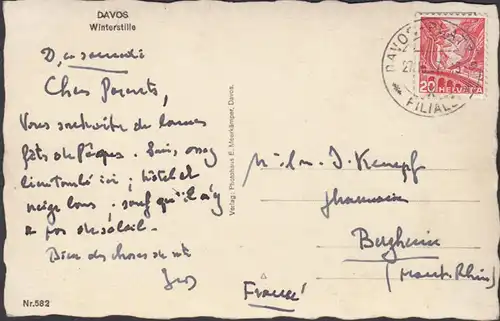 DAVOS
Winterstille
D, ce samedi
Chers Parents,
Vous souhaite de bonnes
fêts de Pâques. Suis
ici ; hôtel et
neige bons ; sauf qu'il n'y
a pas de soleil.
Bien des choses de
Verlag: Photohaus E. Meerkämper, Davos.
Nr.582
DAVOS
FILIALE
20 HELVETIA
J. Kempf
pharmacien
Bergheim
(Haut-Rhin)
France